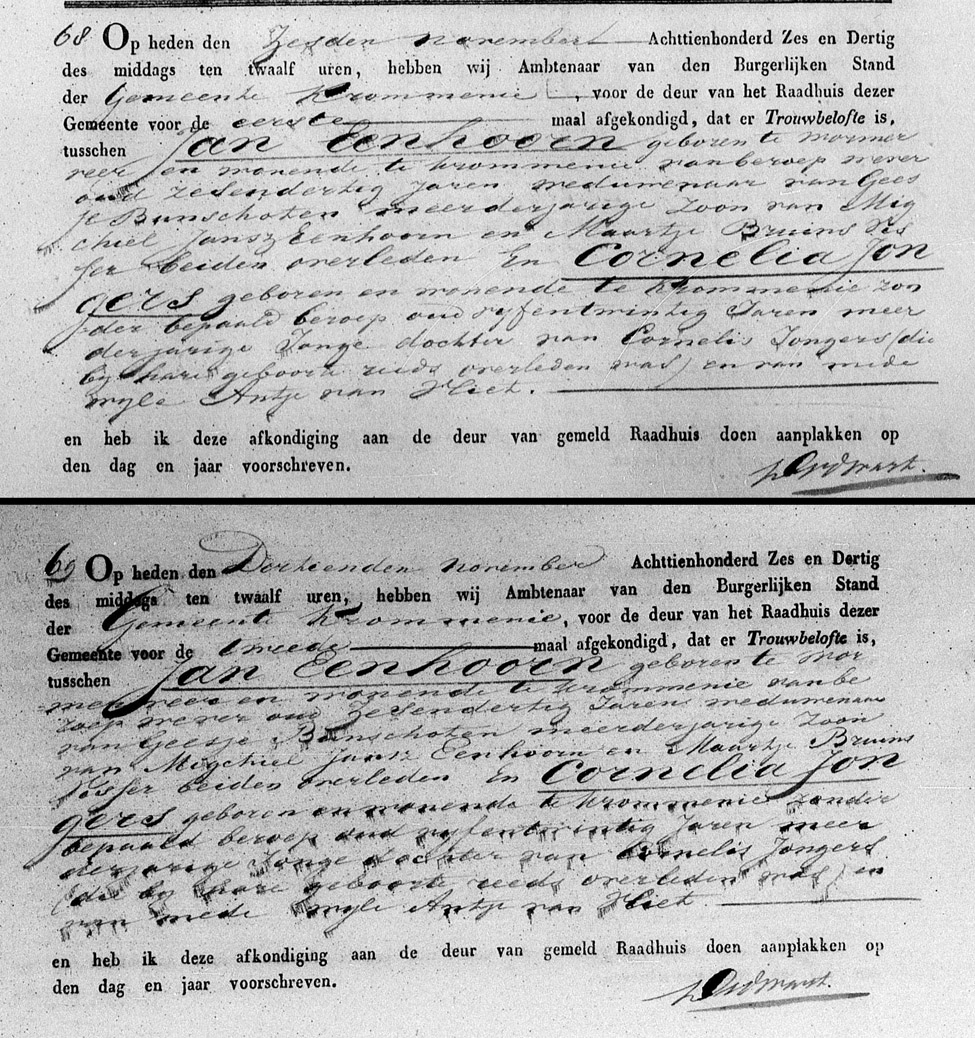 68 Op heden den Zesden november Achttienhonderd Zes en Dertig
des middags ten twaalf uren, hebben wij Ambtenaar van den Burgerlijken Stand
der Gemeente Krommenie, voor de deur van het Raadhuis dezer
Gemeente voor de eerste maal afgekondigd, dat er Trouwbelofte is,
tusschen Jan Eenhoorn geboren te wormer
veer en wonende te krommenie van beroep wever
oud zesendertig Jaren weduwenaar van Gees
je Bunschoten meerderjarige Zoon van Mig
chiel Jansz Eenhoorn en Maartje Bruins Vis
ser beiden overleden En Cornelia Jon
gers geboren en wonende te krommenie zon
der bepaald beroep oud vyfentwintig Jaren meer
derjarige Jonge dochter van Cornelis Jongers (die
by hare geboorte reeds overleden was) en van mede
wyle Antje van Vliet.
en heb ik deze afkondiging aan de deur van gemeld Raadhuis doen aanplakken op
den dag en jaar voorschreven.
69 Op heden den Dertienden november Achttienhonderd Zes en Dertig
des middags ten twaalf uren, hebben wij Ambtenaar van den Burgerlijken Stand
der Gemeente Krommenie, voor de deur van het Raadhuis dezer
Gemeente voor de tweede maal afgekondigd, dat er Trouwbelofte is,
tusschen Jan Eenhoorn geboren te wor
merveer en wonende te krommenie van be
roep wever oud Zesendertig Jaren weduwenaar
van Geesje Bunschoten meerderjarige Zoon
van Migchiel Jansz Eenhoorn en Maartje Bruins
Visser beiden overleden En Cornelia Jon
gers geboren en wonende te krommenie zonder
bepaald beroep oud vyfentwintig Jaren meer
derjarige Jonge dochter van Cornelis Jongers
(die by hare geboorte reeds overleden was) en
van mede wyle Antje van Vliet.
en heb ik deze afkondiging aan de deur van gemeld Raadhuis doen aanplakken op
den dag en jaar voorschreven.